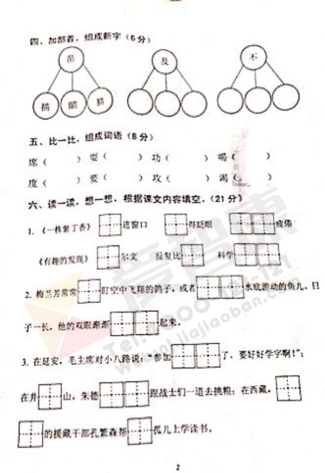 四、加部首，组成新字（6分）
苗 及 不
描 瞄 猫
五、比一比，组成词语（8分）
席（ ） 耍（ ） 功（ ） 喝（ ）
度（ ） 要（ ） 攻（ ） 渴（ ）
六、读一读，想一想，根据课文内容填空。（21分）
1.《一株紫丁香》 进窗口 得眨眼 疲倦
《有趣的发现》 尔文 反复比 科学
2. 梅兰芳常常 盯空中飞翔的鸽子，或者 水底游动的鱼儿，日
子一长，他的双眼渐渐 起来。
3. 在延安，毛主席对小八路说：“参加 了，要好好学字啊！”；
在井 山，朱德 跟战士们一道去挑粮；在西藏，
的援藏干部孔繁森帮 孤儿上学读书。
2